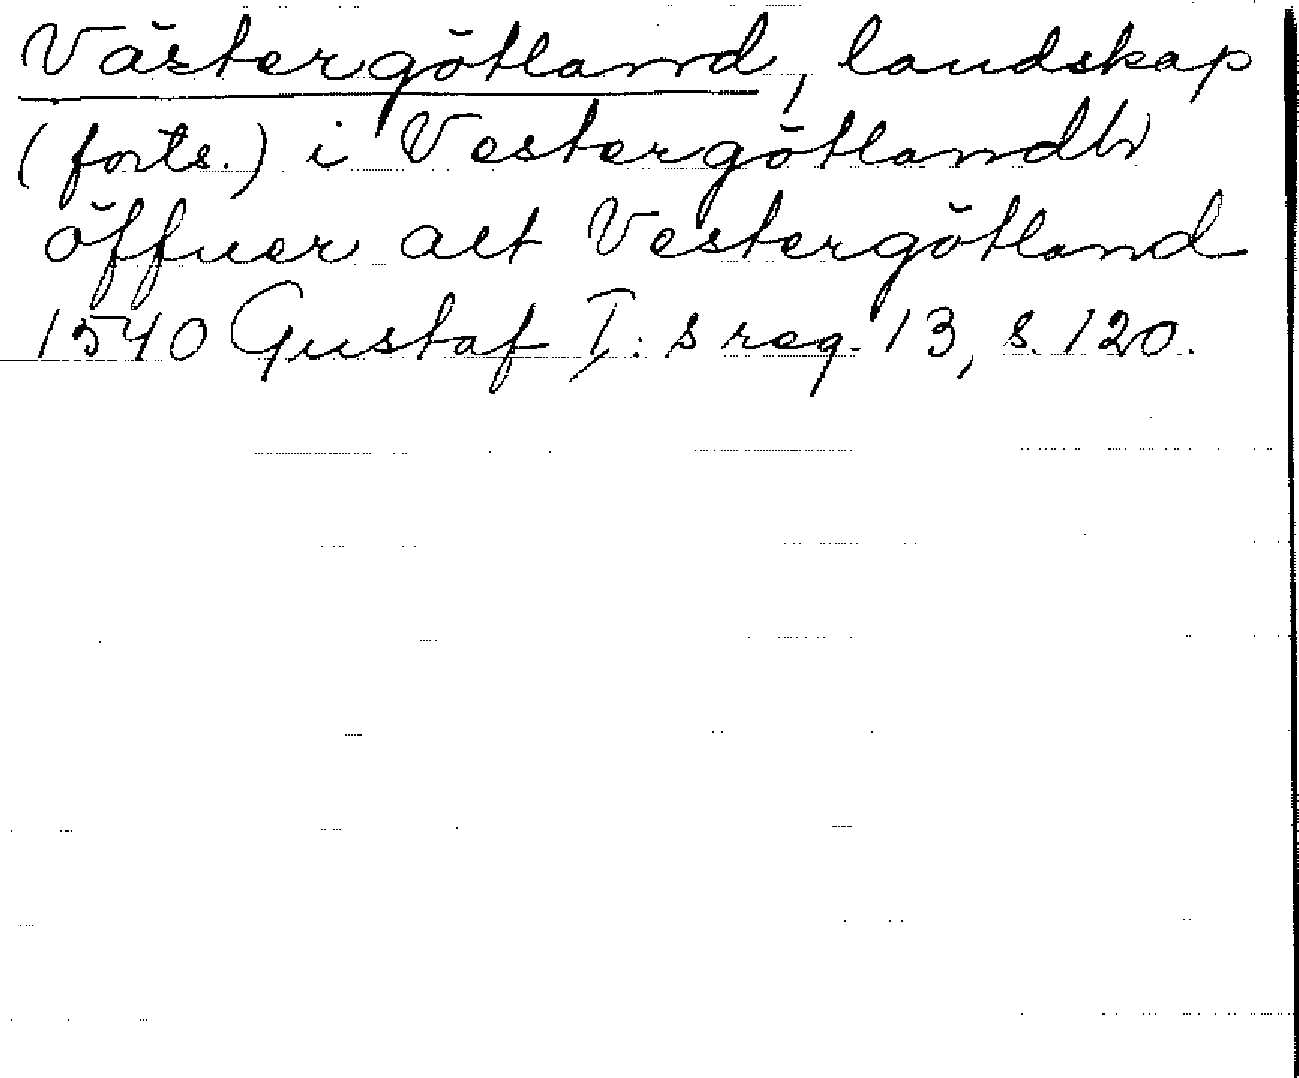 Västergötland, landskap
(forts.) i Vestergötlandh
öffuer alt Vestergötland
1540 Gustaf I:s reg. 13, s. 120.